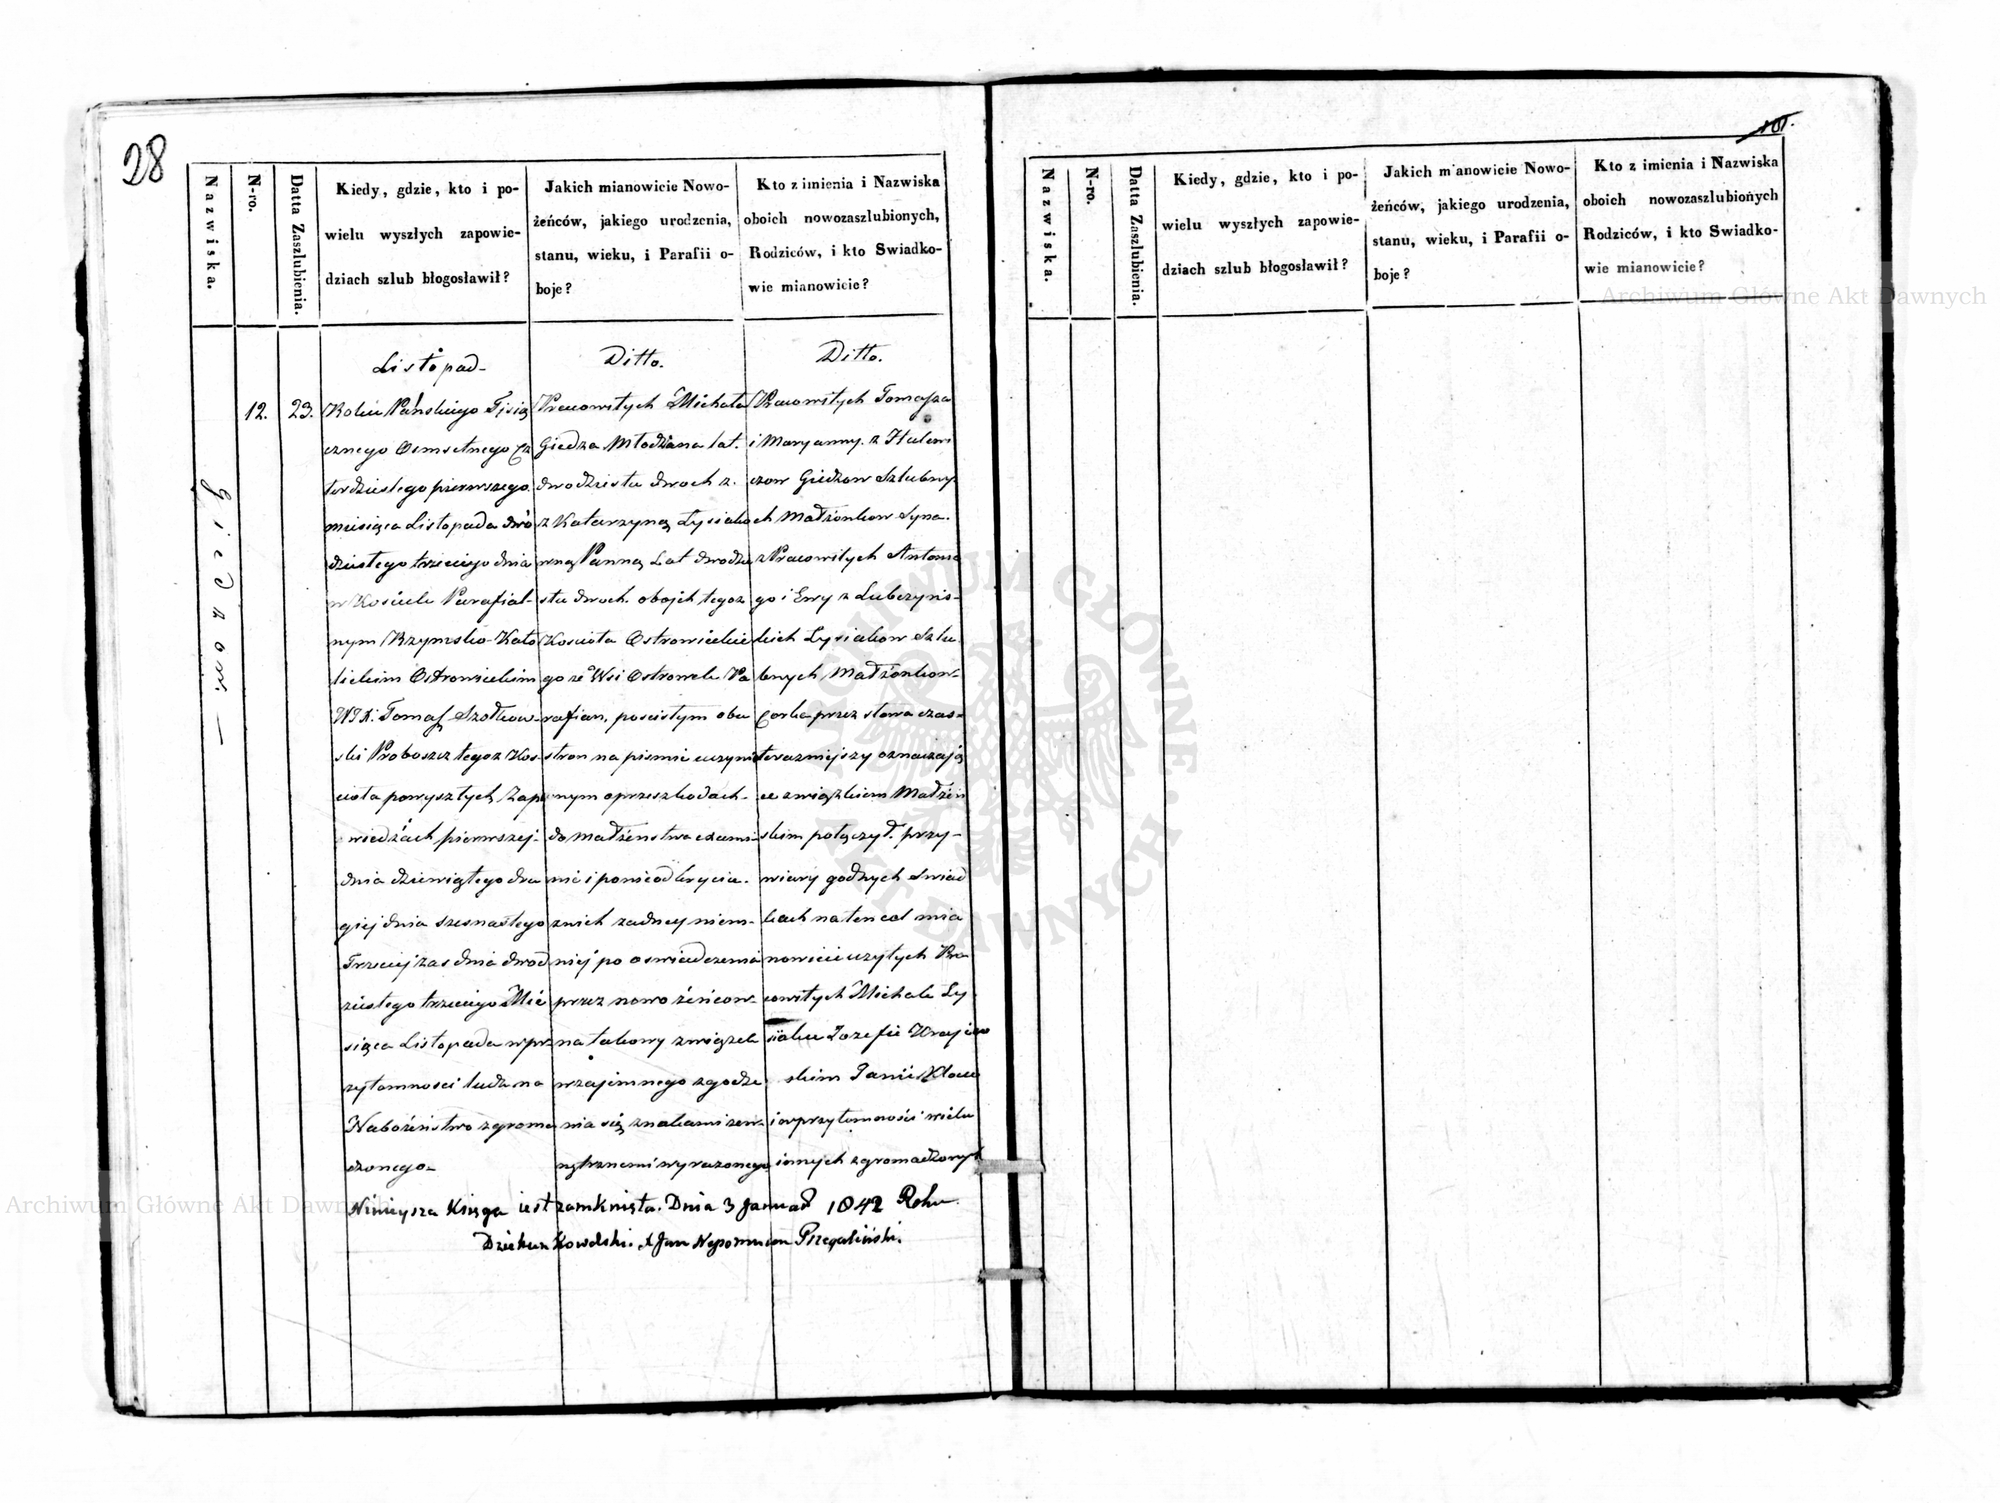 28
Nazwiska.
N-ro.
Datta Zaszlubienia.
Kiedy, gdzie, kto i po-
wielu wyszłych zapowie-
dziach szlub błogosławił?
Jakich mianowicie Nowo-
żeńców, jakiego urodzenia,
stanu, wieku, i Parafii o-
boje?
Kto z imienia i Nazwiska
oboich nowozaszlubionych,
Rodziców, i kto Swiadko-
wie mianowicie?
Giedzow. —
12.
23.
Listopad-
Roku Pańskiego Tysią
cznego Osmsetnego Cz
terdziestego pierwszego
miesiąca Listopada dwó
dziestego trzeciego dnia
w Kosciele Parafial-
nym Rzymsko-Kato
lickim Ostrowieckim
Tomasz Szołkow-
ski Proboszcz tegoz Kos-
ciola powyszłych Zapo
wiedziach pierwszej-
dnia dziewiątego dru
giej dnia szesnastego
Trzeciej zas dnia dwod
ziestego trzeciego Mie
siąca Listopada wprz
zytomnosci ludu na
Nabożeństwo zgroma
dzonego-
Ditto.
Pracowitych Michała
Giedza Młodziana lat.
dwodziestu dwoch z.
z Katarzyną Lysiako
wną Panną Lat dwodzie
stu dwoch. obojch tegoz
Kosciola Ostrowieckie
go ze Wsi Ostrowek Pa
rafian, poscistym obu
stron na pismie uczynio
nym oprzeszkodach-
do Małżenstwa exami-
nie i ponieodkryciu.
znich zadney niem-
niej po oswiadczenia
przez nowożeńcow-
na takowy związek
wzajemnego zgodze
nia się znakami zew-
nętrznemi wyrazonego
Ditto.
Pracowitych Tomasza
i Maryanny. z Hulewi
czow Giedzow Szlubny
ch Małżonkow Syna.
z Pracowitych Antonie
go i Ewy z Lubczyns-
kich Lysiakow Szlu
bnych Małżonkow-
Corke przez słowa czas-
terazniejszy oznaczają
ce związkiem Małżeń
skim połączył. przy-
wiary godnych Swiad
kach na ten cel mia
nowicie uzytych Pra
cowitych Michale Ly
siaku Jozefie
skim
i wprzytomności wielu
innych zgromadzonych
Niniejsza Księga iest zamknięta. Dnia 3 Januar 1842 Roku.
Dziekan Kowelski. X Jan Nepomucen Przegaliński.
101.
Nazwiska.
N-ro.
Datta Zaszlubienia.
Kiedy, gdzie, kto i po-
wielu wyszłych zapowie-
dziach szlub błogosławił?
Jakich mianowicie Nowo-
żeńców, jakiego urodzenia,
stanu, wieku, i Parafii o-
boje?
Kto z imienia i Nazwiska
oboich nowozaszlubionych
Rodziców, i kto Swiadko-
wie mianowicie?
Archiwum Główne Akt Dawnych
Archiwum Główne Akt Dawnych
ARCHIWUM GŁÓWNE AKT DAWNYCH